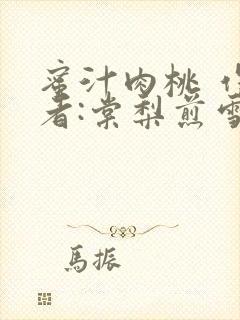 蜜汁肉桃 作
者:棠梨煎雪
馬振